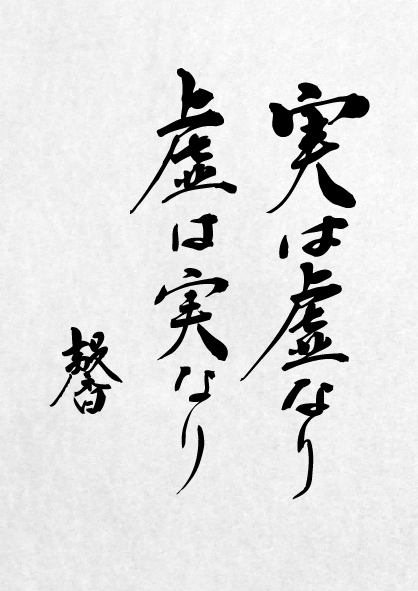 実は虚なり
虚は実なり
馨